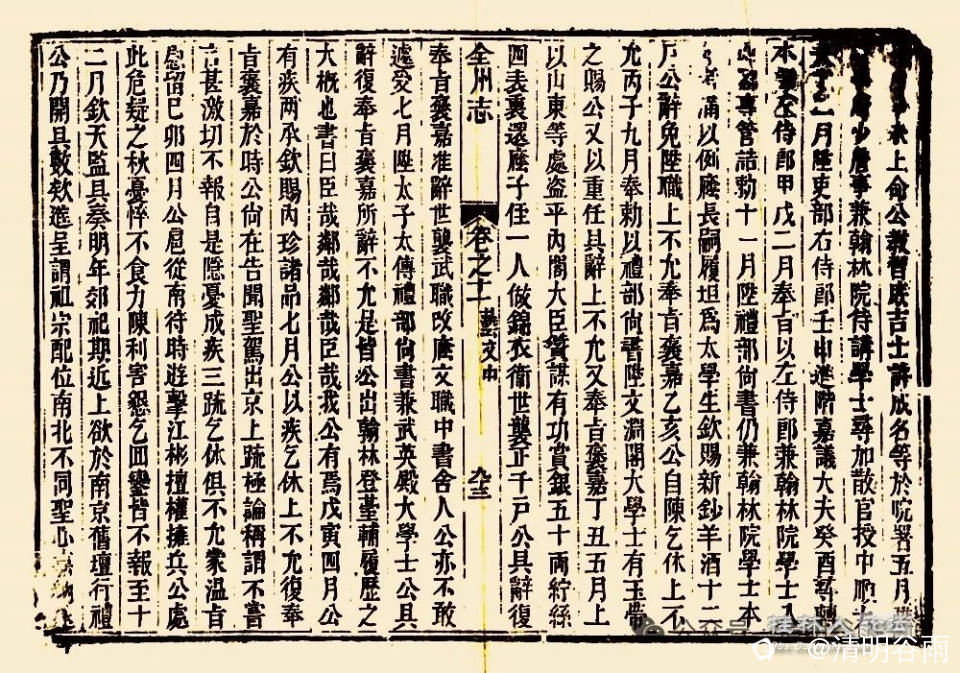 上俞公教習庶吉士許成名等於院署五月
少詹事兼翰林院侍講學士尋加散官授中順
二月陞吏部右侍郎壬申進階嘉議大夫癸酉轉
本部左侍郎甲戌二月奉旨以左侍郎兼翰林院學士入
專管誥勅十一月陞禮部尚書仍兼翰林院學士本
滿以例廕長嗣履坦爲太學生欽賜新鈔羊酒十二
月公辭免陞職上不允奉旨褒嘉乙亥公自陳乞休上不
允丙子九月奉勅以禮部尚書陞文淵閣大學士有玉帶
之賜公又以重任具辭上不允又奉旨褒嘉丁丑五月上
以山東等處盜平內閣大臣贊謀有功賞銀五十兩紵絲
四表裏還廕子侄一人做錦衣衞世襲正千戶公具辭復
全州志 卷之十一 藝文中 九三
奉旨褒嘉准辭世襲武職改廕文職中書舍人公亦不敢
遽受七月陞太子太傅禮部尚書兼武英殿大學士公具
辭復奉旨褒嘉所辭不允是皆公出翰林登臺輔履歷之
大概也書曰臣哉鄰哉鄰哉臣哉我公有焉戊寅四月公
有疾兩承欽賜內珍諸品七月公以疾乞休上不允復奉
旨褒嘉於時公尚在告聞聖駕出京上疏極論稱謂不嘗
言甚激切不報自是隱憂成疾三疏乞休俱不允蒙溫旨
慰留己卯四月公扈從南待時遊擊江彬擅權擁兵公處
此危疑之秋憂悴不食力陳利害懇乞回鑾皆不報至十
二月欽天監具奏明年郊祀期近上欲於南京舊壇行禮
公乃開具數欵進呈謂祖宗配位南北不同聖心
公众号
@清明谷雨